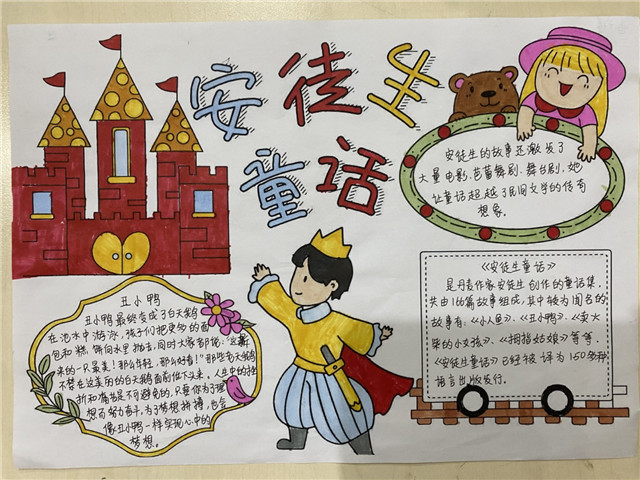 安徒生
童话
安徒生的故事还激发了
大量电影、芭蕾舞剧、舞台剧,她
让童话超越了民间文学的传奇
想象。
《安徒生童话》
是丹麦作家安徒生创作的童话集,
共由166篇故事组成,其中较为闻名的
故事有:《小人鱼》、《丑小鸭》、《卖火
柴的小女孩》、《拇指姑娘》等等。
《安徒生童话》已经被译为150多种
语言出版发行。
丑小鸭
丑小鸭最终变成了白天鹅
在池水中游泳,孩子们把更多的面
包和糕饼向水里抛去,同时大家都说:这新
来的一只最美!那么年轻,那么好看!那些老天鹅
不禁在这美丽的白天鹅面前低下头来。人生中的挫
折和痛苦是不可避免的,只要你为了理
想而努力奋斗,为了梦想拼搏,也会
像丑小鸭一样实现心中的
梦想。